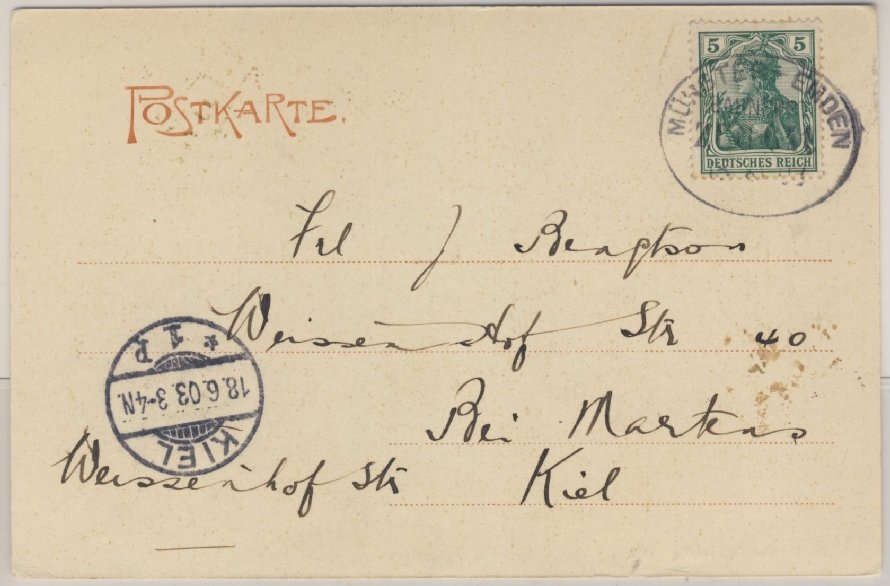 POSTKARTE.
5 5
DEUTSCHES REICH
EMDEN
Frl J Bengtson
Weissenhof Str 40
Bei Martens
Kiel
Weissenhof Str
KIEL
18.6.03.3-4N.
* 1 P